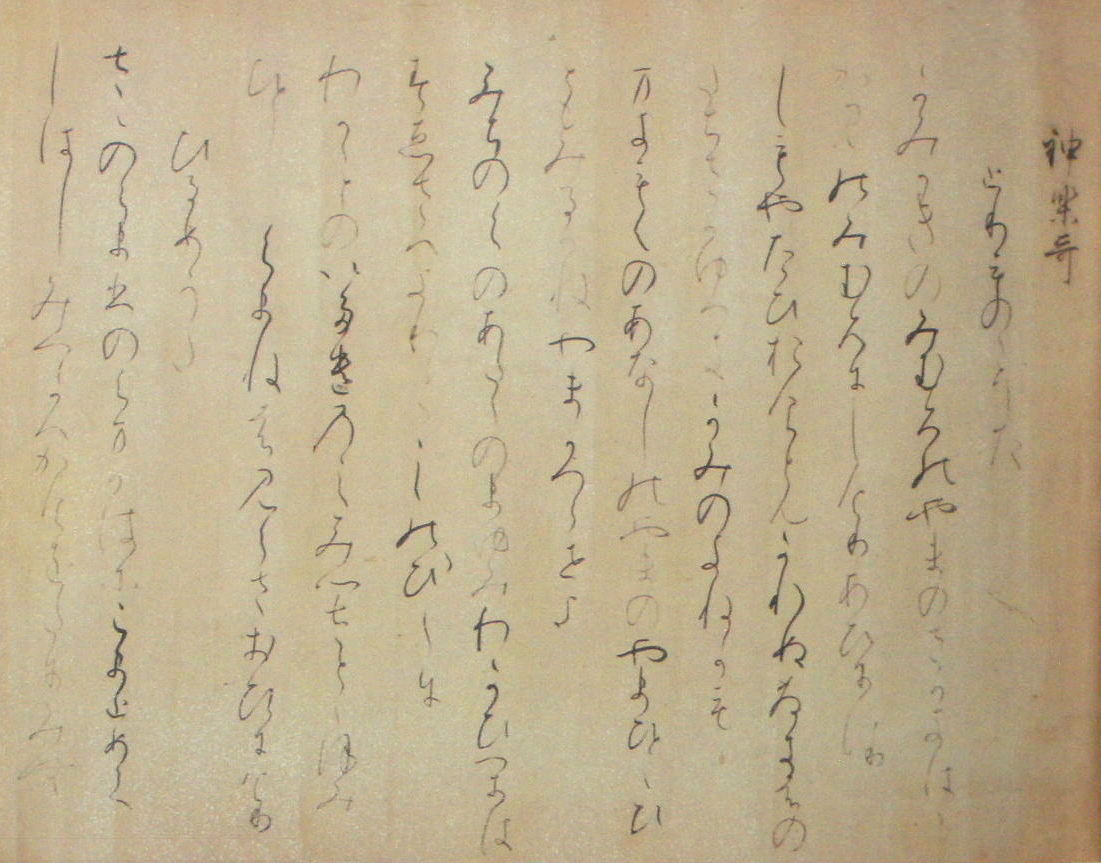 神楽哥
とりものゝうた
かみかきのみむろのやまのさかきはゝ
かみのみむろにしけりあひにけり
しもやたひおけとかれせぬさかきはの
たちさかゆへきかみのきねかも
万きもくのあなしのやまのやまひとゝひ
ともみるかねやまかつらせよ
みちのくのあたちのまゆみわかひかは
すゑさへよりこしのひ〳〵に
わかゝとのいたゐのしみつさとゝほみ
ひとしくまねはみくさおひにけり
ひるめのうた
さゝのくまひのくまかはにこまとめて
しはしみつかへかけをたにみむ